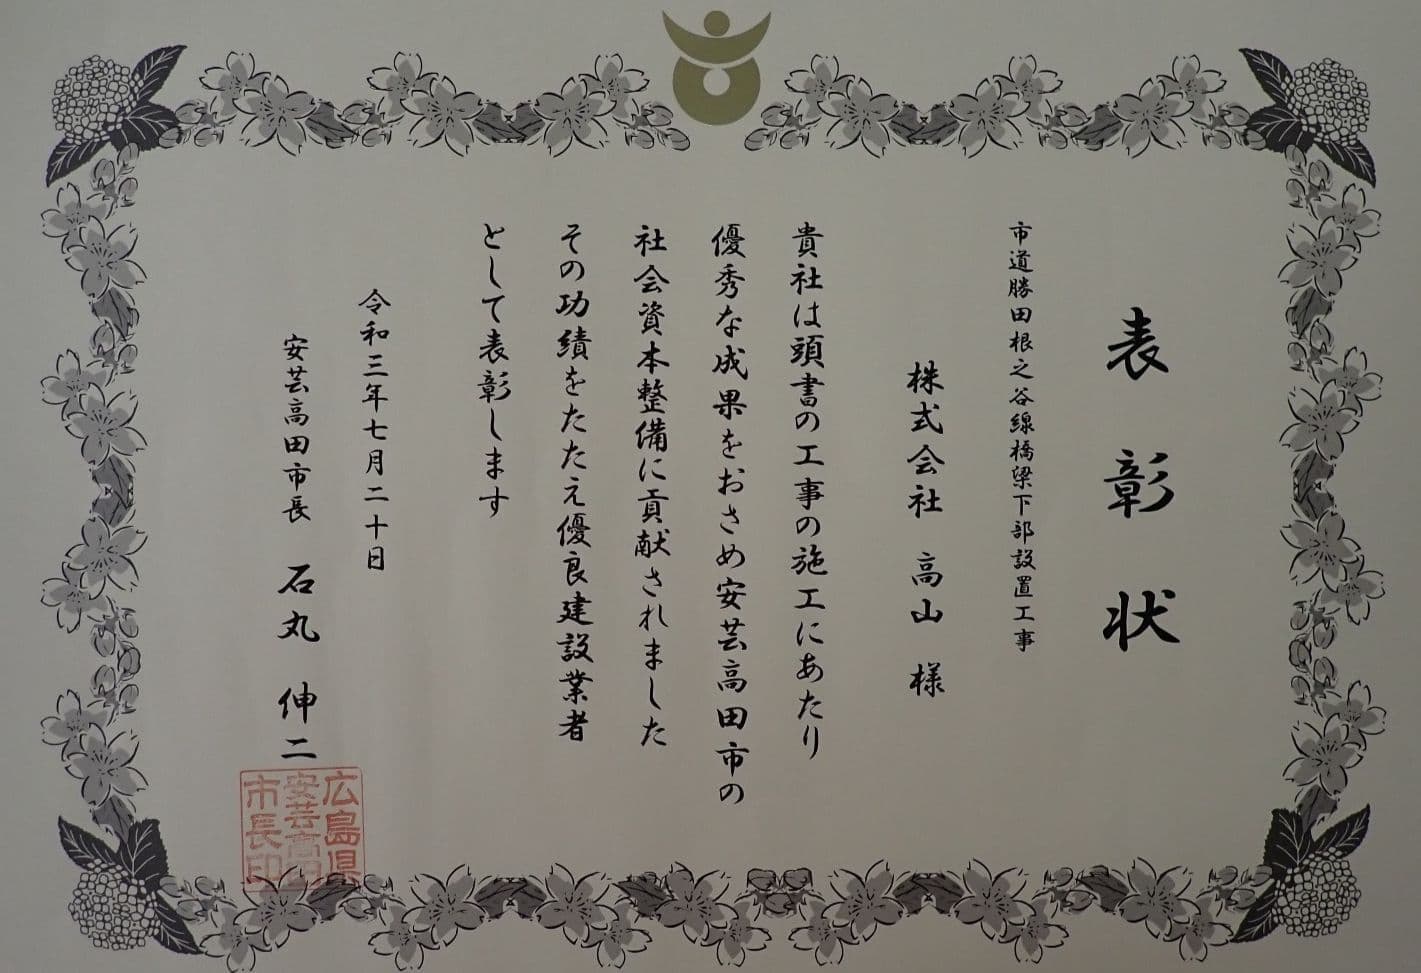 表彰状
市道勝田根之谷線橋梁下部設置工事
株式会社 高山 様
貴社は頭書の工事の施工にあたり
優秀な成果をおさめ安芸高田市の
社会資本整備に貢献されました
その功績をたたえ優良建設業者
として表彰します
令和三年七月二十日
安芸高田市長 石丸 伸二
広島県
安芸高田
市長印